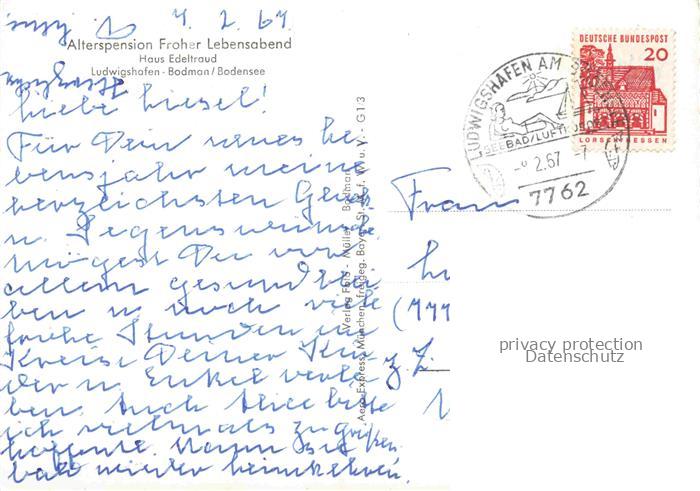 7. 2. 67
Alterspension Froher Lebensabend
Haus Edeltraud
Ludwigshafen - Bodman / Bodensee
Liebe Liesel!
Für Dein neues Le-
bensjahr meine
herzlichsten Glück
u. Segenswünsche
mögest Du vor
allem gesund blei
ben u noch viele
frohe Stunden im
Kreise Deiner Kin
der u Enkel verle
ben. Auch Alice bitte
ich vielmals zu grüßen
hoffentl. kann sie
bald wieder heimkehren.
Verlag Foto - Müller - Bodman
Aero Express, München, freigeg. Bayer. St. M. f. W. u. V. - G13
DEUTSCHE BUNDESPOST
20
LORSCH/HESSEN
LUDWIGSHAFEN AM
SEEBAD/LUFTKURORT
2.67 -7
7762
Frau
z. Z.
privacy protection
Datenschutz